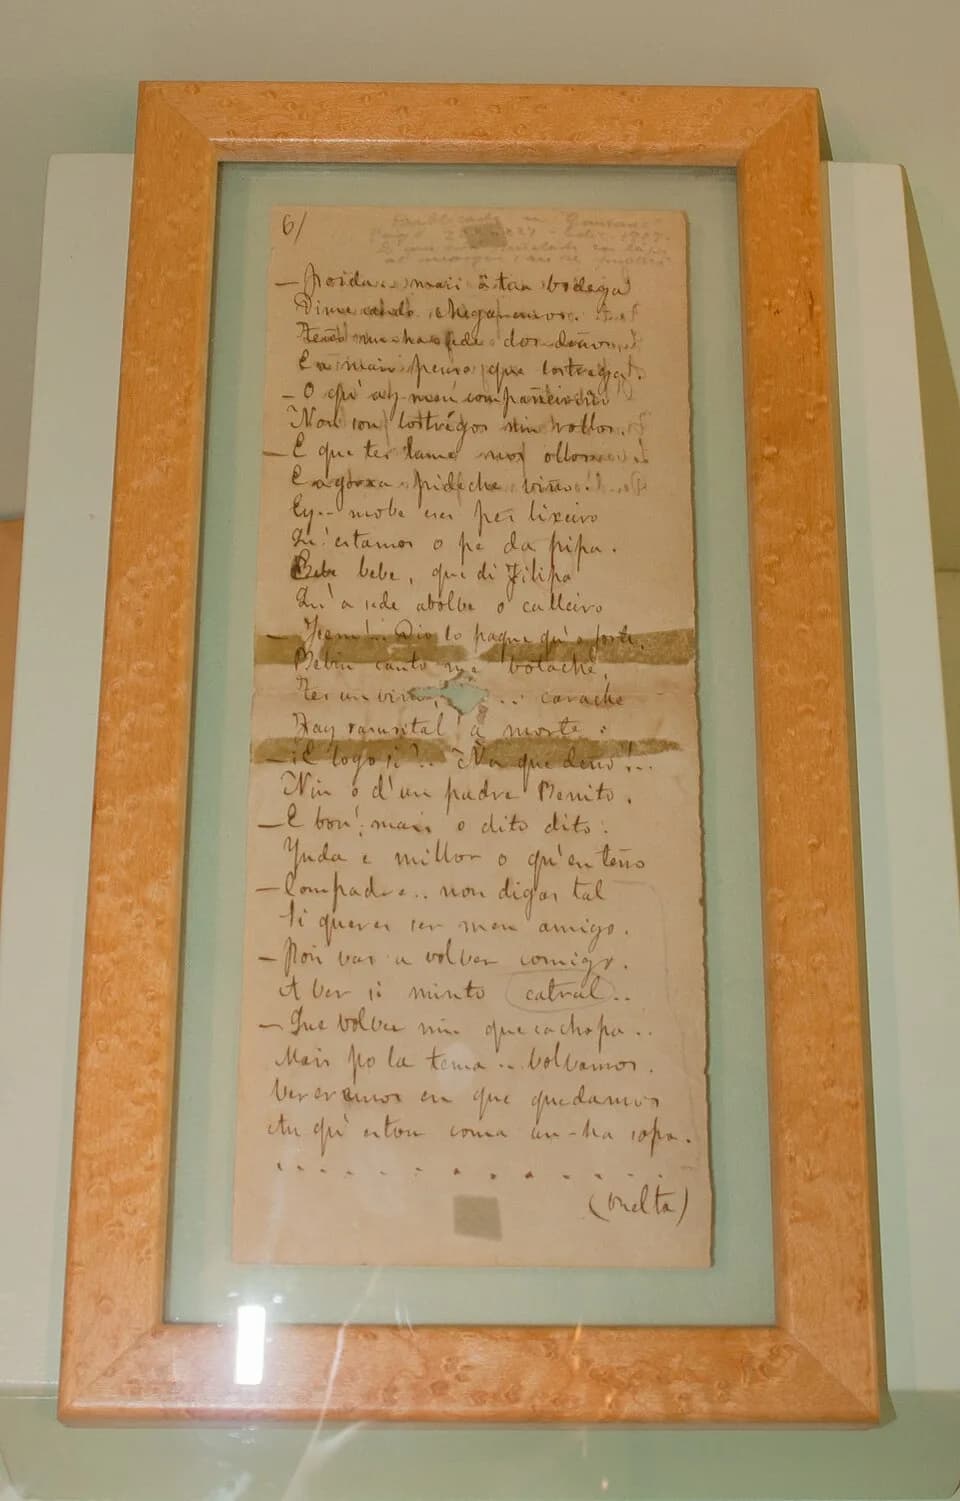 6/
— Poida.. mais ô tan bodega
Dime cando chegaremos.
Teño unha sede dos demos,
E a mais penso que lostrega.
— O qu'ay meu compañeiriño
Non son lostregos nin rollos.
— E que tes lama nos ollos
E a gorxa pideche viño.
Ey.. mobe eses pes lixeiro
Qu'estamos o pe da pipa.
Bebe bebe, que di Filipa
Qu'a sede abolbe o calleiro
— Jiem!.. Dio lo pague qu'o forte,
Bebin canto me botache,
Ten un viru carache
Hay rasusital' a morte.
— ¡E logo si?.. Na que deno!..
Nin o d'un padre Benito.
— E bon! mais o dito dito.
Ynda e millor o qu'eu teño
— Compadre.. non digas tal
Si queres ser meu amigo.
— Pois vas a volver comigo.
A ver si minto catral..
— Que volver nin que cachopa..
Mais po la tema.. bolvamos.
Veremos en que quedamos
Au qu'estou coma un-ha sopa.
(vuelta)